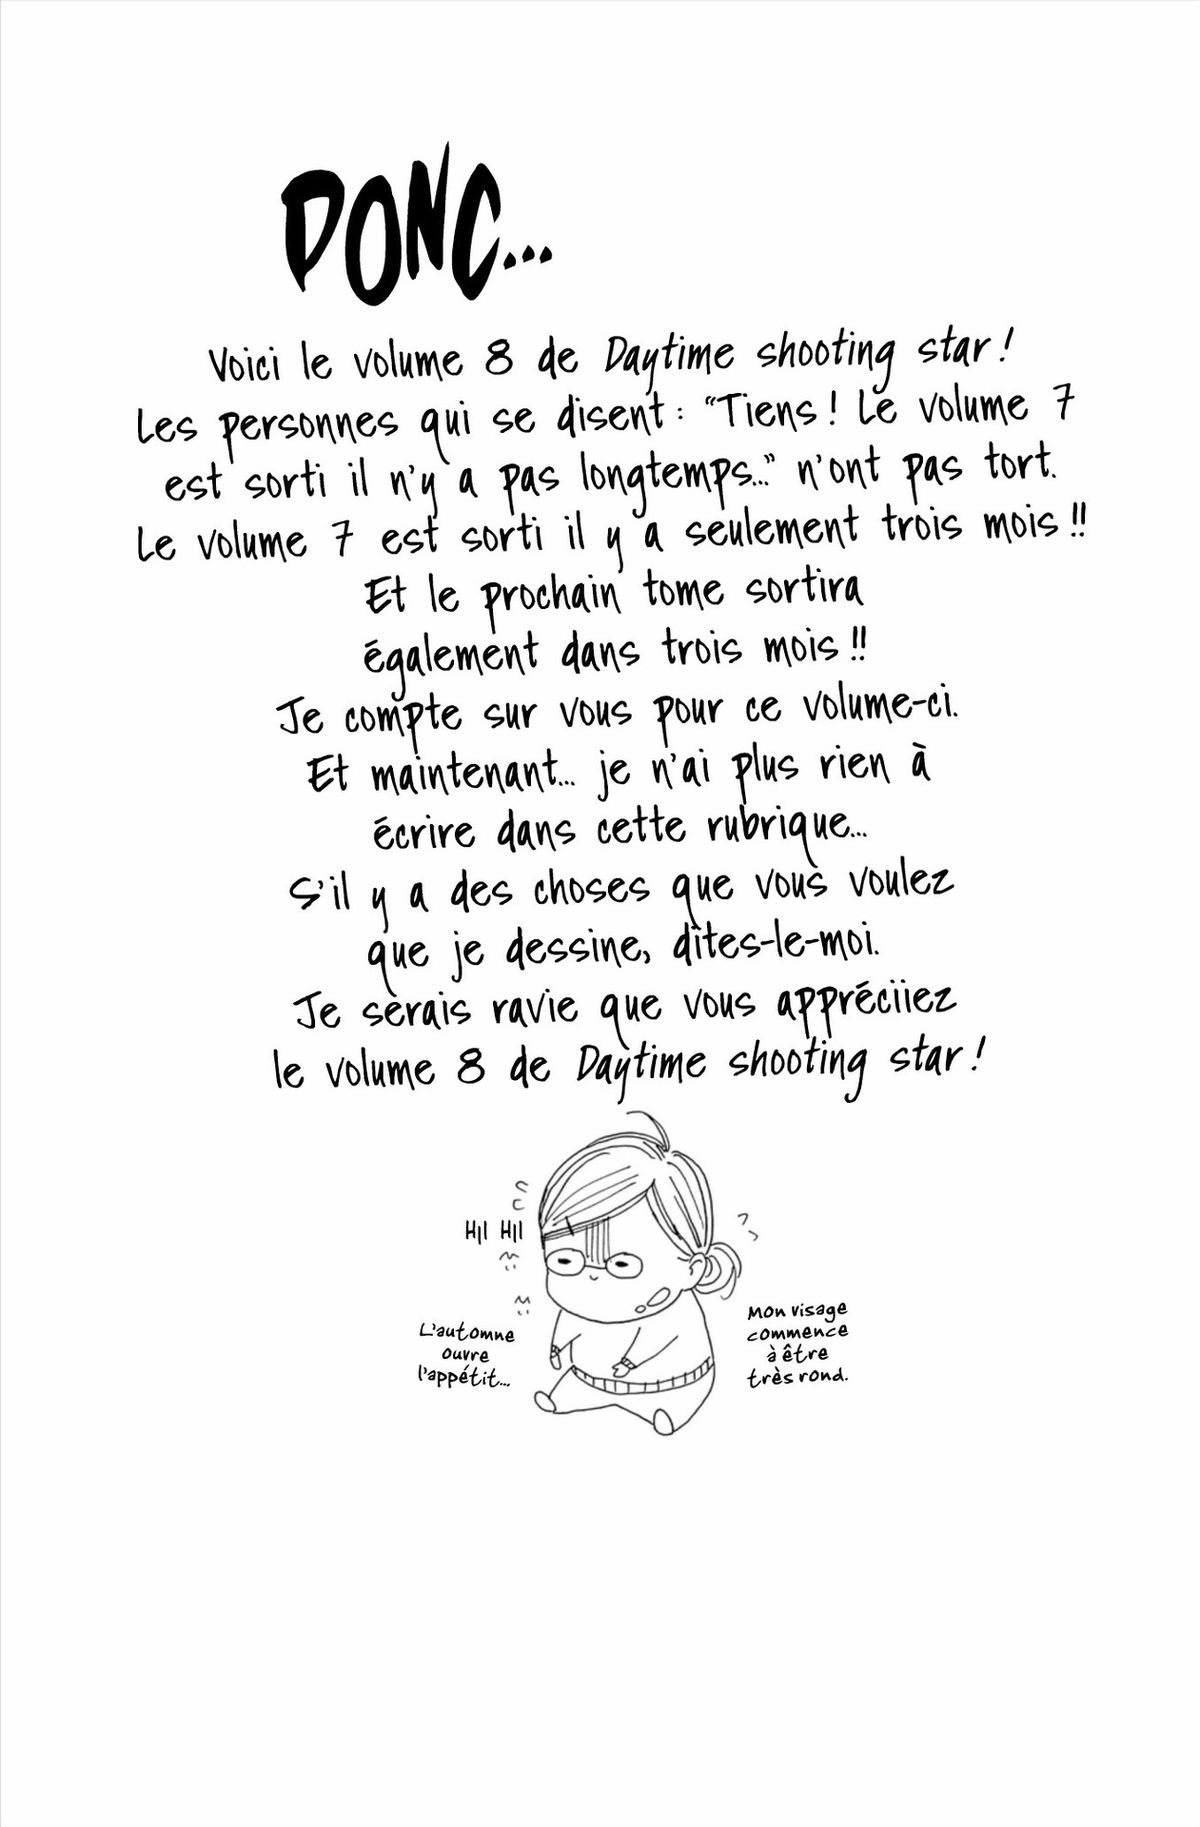 DONC...
Voici le volume 8 de Daytime shooting star !
Les personnes qui se disent : "Tiens ! Le volume 7
est sorti il n'y a pas longtemps..." n'ont pas tort.
Le volume 7 est sorti il y a seulement trois mois !!
Et le prochain tome sortira
également dans trois mois !!
Je compte sur vous pour ce volume-ci.
Et maintenant... je n'ai plus rien à
écrire dans cette rubrique...
S'il y a des choses que vous voulez
que je dessine, dites-le-moi.
Je serais ravie que vous appréciiez
le volume 8 de Daytime shooting star !
L'automne
ouvre
l'appétit...
Mon visage
commence
à être
très rond.